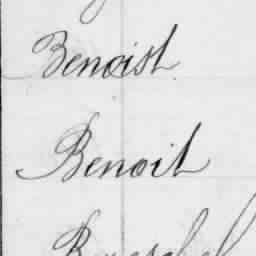 Benoist
Benoit